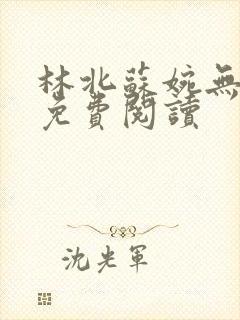 林北蘇婉無
免費閱讀
沈光軍